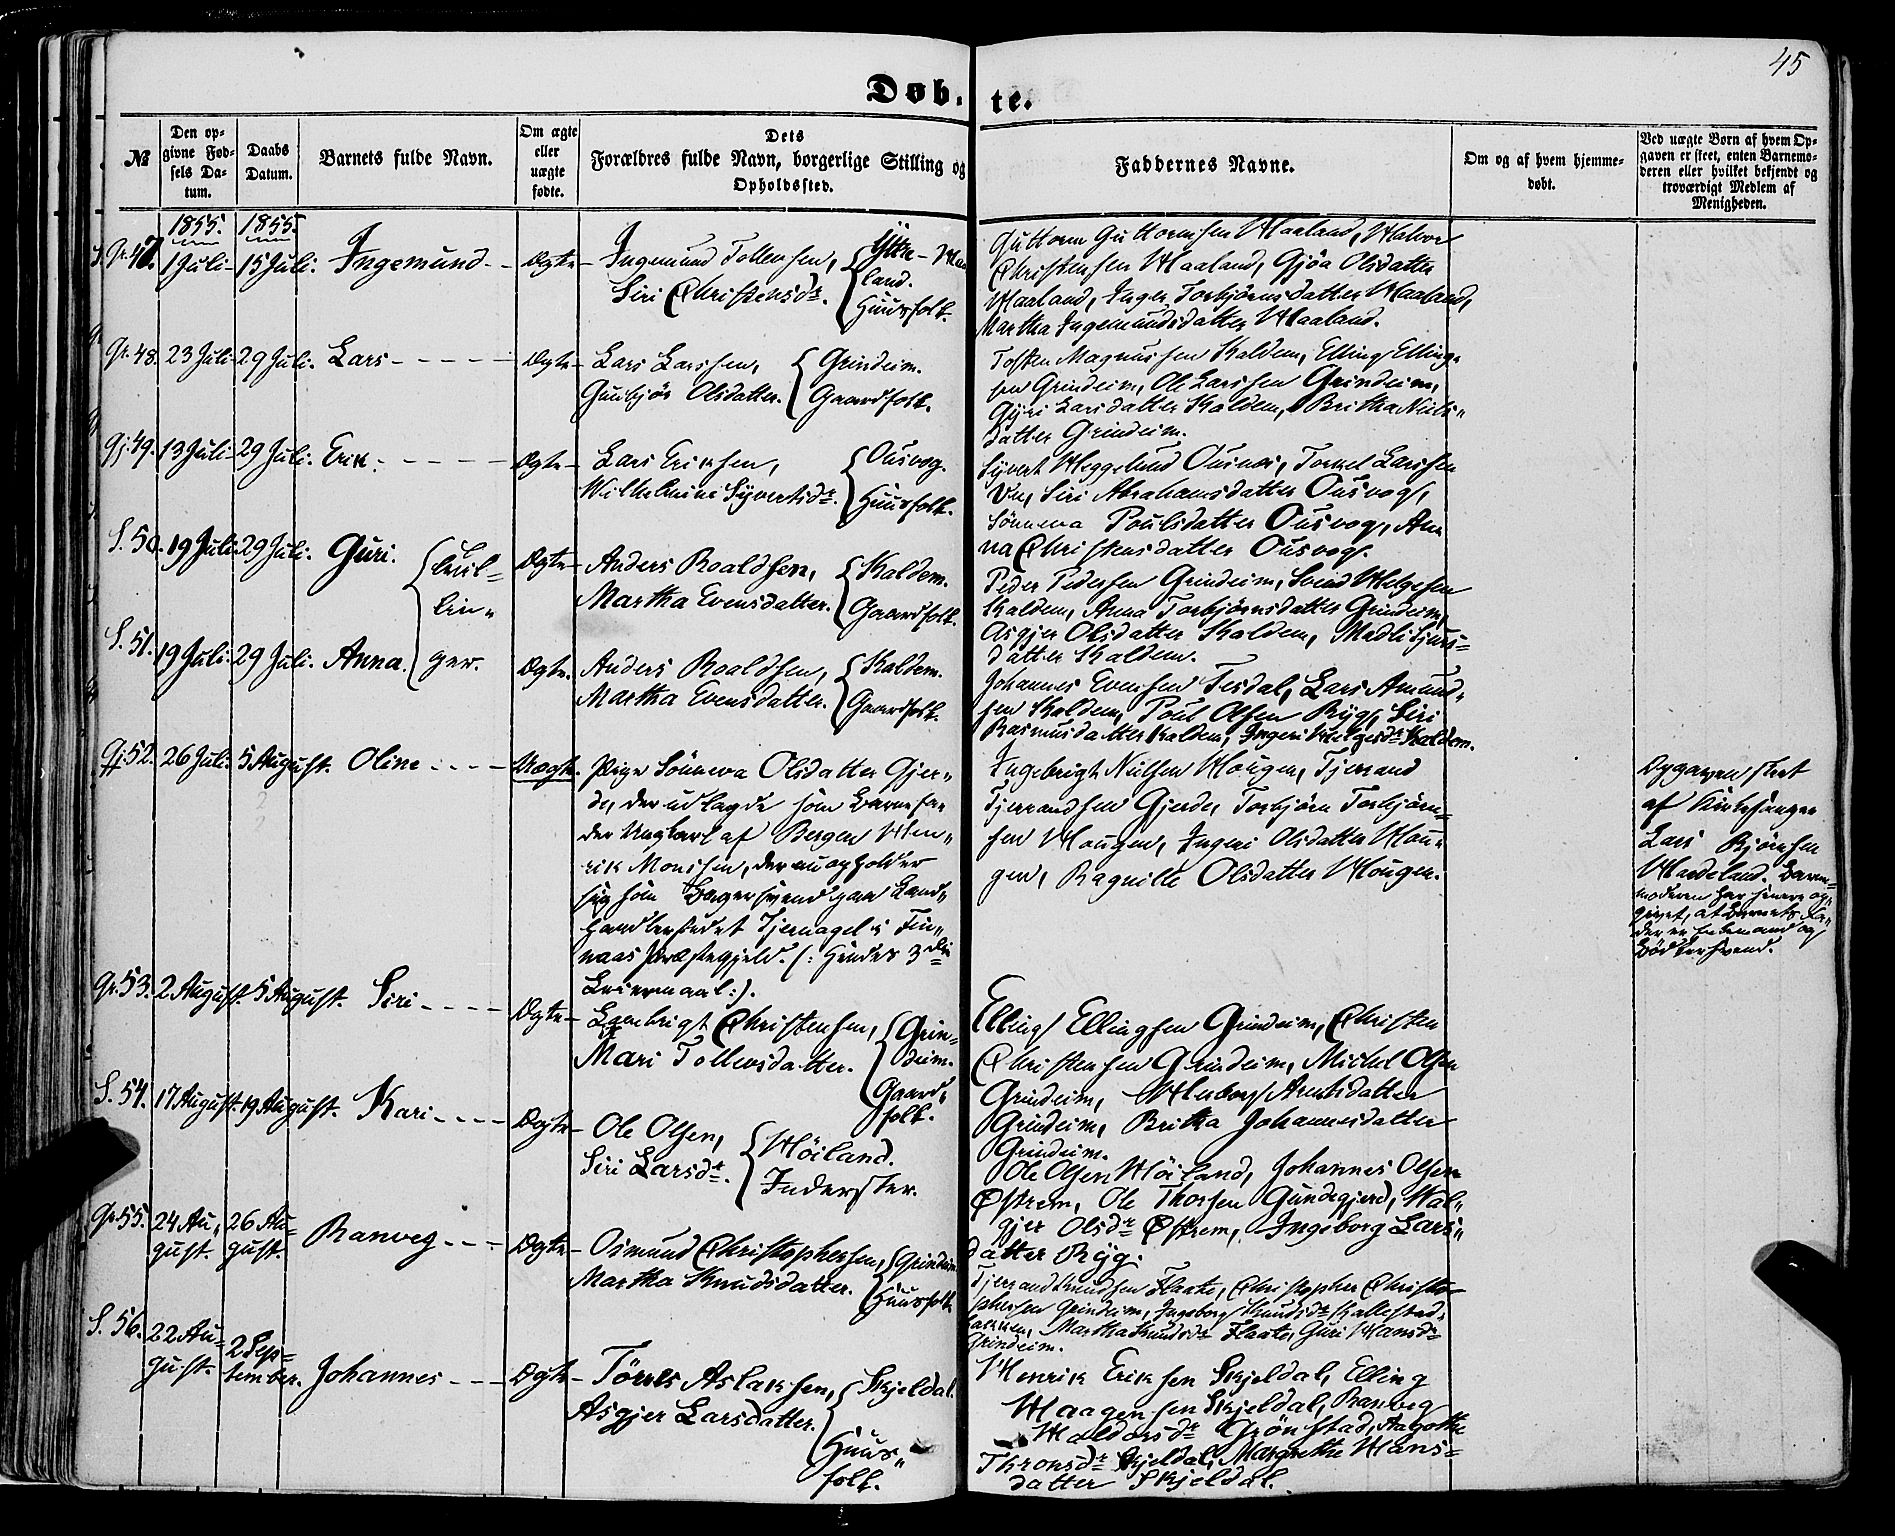 45
Døb. te.
№
Den op-
givne Fød-
sels Da-
tum.
Daabs
Datum.
Barnets fulde Navn.
Om ægte
eller
uægte
fødte.
Dets
Forældres fulde Navn, borgerlige Stilling og
Opholdssted.
Faddernes Navne.
Om og af hvem hjemme-
døbt.
Ved uægte Børn af hvem Op-
gaven er skeet, enten Barnemo-
deren eller hvilket bekjendt og
troværdigt Medlem af
Menigheden.
1855. 1855.
Gr. 47. 1 Juli- 15 Juli. Ingemund - - Ægte-
Ingemund Tollevsen, Siri Christensdr.
{ Yttre-Haa
land.
Huusfolk.
Guttorm Guttormsen Haaland, Halvor
Christensen Haaland, Gjöa Olsdatter
Haaland, Inger Torbjörnsdatter Haaland,
Martha Ingemundsdatter Haaland.
Gr. 48. 23 Juli- 29 Juli. Lars - - - - - Ægte-
Lars Larssen,
Gunbjör Olsdatter.
{ Grindeim.
Gaardfolk.
Tosten Magnussen Kaldem, Elling Elling-
sen Grindeim, Ole Larssen Grindeim,
Gyri Larsdatter Kaldem, Britha Niels-
datter Grindeim.
Gj. 49. 13 Juli- 29 Juli. Erik. - - - - - Ægte-
Lars Eriksen,
Wilhelmine Syvertsdr.
{ Ousvog.
Huusfolk.
Syvert Heggelund Ousnes, Torkel Larssen
Siri Abrahamsdatter Ousvog,
Sönneva Poulsdatter Ousvog, An-
na Christensdatter Ousvog.
S. 50. 19 Juli 29 Juli. Guri. Ægte-
{ Tvil-
lin-
ger.
Anders Roaldsen,
Martha Evensdatter.
{ Kaldem.
Gaardfolk.
Peder Pedersen Grindeim, Svend Helgesen
Kaldem, Anna Torbjörnsdatter Grindeim,
Asgjer Olsdatter Kaldem, Madli Sjurs-
datter Kaldem.
S. 51. 19 Juli. 29 Juli. Anna. Ægte.
Anders Roaldsen,
Martha Evensdatter.
{ Kaldem.
Gaardfolk.
Johannes Evensen Tesdal, Lars Amund-
sen Kaldem, Poul Olsen Ryg, Siri
Rasmusdatter Kaldem, Ingeri Helgesdr. Kaldem.
Gj. 52. 26 Juli. 5 August. Oline - - - - Uægte.
Pige Sönneva Olsdatter Gjer-
de, der udlagde som Barnefa-
der Ungkarl af Bergen Hen-
rik Monssen, der nu opholder
sig som Bagersvend paa Land-
handlerstedet Tjernagel i Fin-
naas Præstegjeld. (: Hendes 3die
Leiermaal :).
Ingebrigt Nielsen Hougen, Tjerrand
Tjerrandsen Gjerde, Torbjörn Torbjörn-
sen Hougen, Ingeri Olsdatter Hou-
gen, Ragnille Olsdatter Hougen.
Opgaven skeet
af Kirkesanger
Lars Björnsen
Hardeland. Barne-
moderen har senere op-
givet, at Barnets Fa-
der er Enkemand og
Bödkersvend.
Gr. 53. 2 August. 5 August. Siri - - - - Ægte-
Engebrigt Christensen,
Mari Tollevsdatter.
{ Grin-
deim.
Gaard-
folk.
Elling Ellingsen Grindeim, Christen
Christensen Grindeim, Michel Olsen
Grindeim, Herborg Arntsdatter
Grindeim, Britha Johannesdatter
Grindeim.
S. 54. 17 August. 19 August. Kari - - - - Ægte-
Ole Olsen,
Siri Larsdr.
{ Höiland.
Inderster.
Ole Olsen Höiland, Johannes Olsen
Östrem, Ole Thorsen Gundegjerd, Wal-
gjer Olsdr. Östrem, Ingeborg Lars-
datter Ryg.
Gr. 55. 24 Au-
gust. 26 Au-
gust. Ranveg - - - Ægte-
Osmund Christophersen,
Martha Knudsdatter.
{ Grindeim
Huusfolk
Tjerrand Knudsen Flaate, Christopher Christo-
phersen Grindeim, Ingeborg Knudsdr.
Martha Knudsdr. Flaate, Guri Hansdr.
Grindeim.
S. 56. 22 Au-
gust. 2 Sep-
tember. Johannes - - - Ægte-
Törres Aslaksen,
Asgjer Larsdatter.
{ Skjeldal.
Huus-
folk.
Henrik Eriksen Skjeldal, Elling
Haagensen Skjeldal, Ranveg
Haldorsdr. Grönstad, Aagothe
Thronsdr. Skjeldal, Margrethe Hans-
datter Skjeldal.